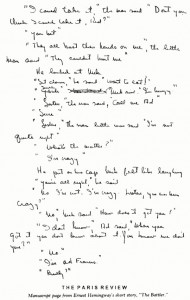 "I could take it," the man said. "Don't you
think I could take it, kid?"
"You bet"
"They all bust their hands on me," the little
man said. "They couldn't hurt me
He looked at Nick.
"Sit down," he said. "Want to eat?"
"Sure" Nick said "I'm hungry"
"Listen," the man said, "Call me Ad"
"Sure"
"Listen," the little man said "I'm not
quite right"
"What's the matter?"
"I'm crazy"
He put on his cap. Nick felt like laughing
"You're all right," he said
"No I'm not. I'm crazy. Listen, you ever been
crazy?"
"No," Nick said "How does it get you?"
"I don't know," Ad said, "When you
got it you don't know about it. You know me don't
you?"
"No"
"I'm Ad Francis"
THE PARIS REVIEW
Manuscript page from Ernest Hemingway's short story, "The Battler."